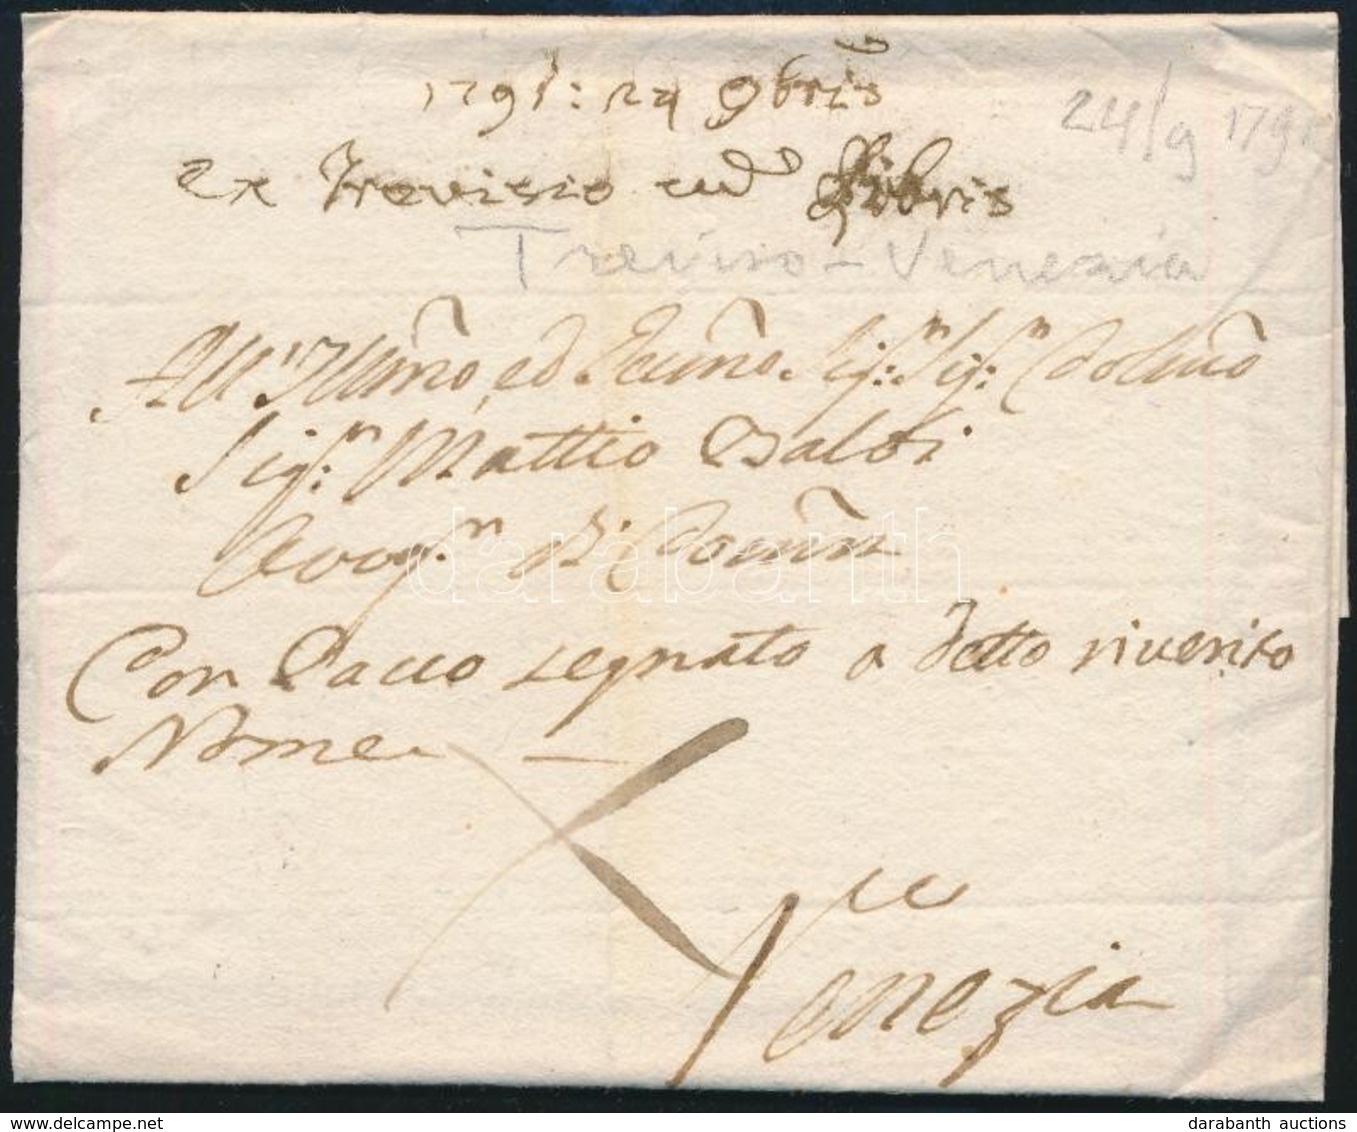 1791: 24 9bris
24/9 1791
ex Trevisio ad 9bris
Treviso - Venezia
All'Illmo, ed Eccmo Sig.r Sig.r Colmo
Sig.r Mattio Balbi
Avog.r di Comun
Con Pacco segnato a detto riverito
Nome
Venezia
darabanth
delcampe.net
darabanth auctions